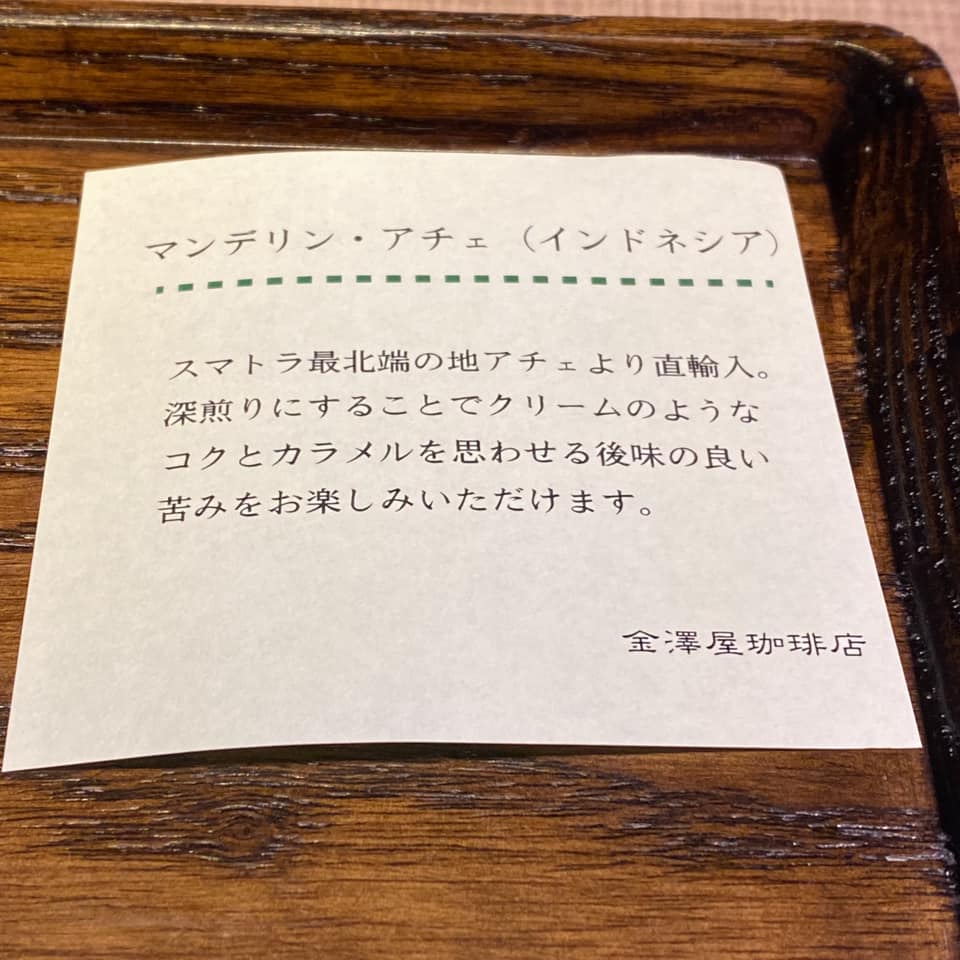 マンデリン・アチェ（インドネシア）
スマトラ最北端の地アチェより直輸入。
深煎りにすることでクリームのような
コクとカラメルを思わせる後味の良い
苦みをお楽しみいただけます。
金澤屋珈琲店